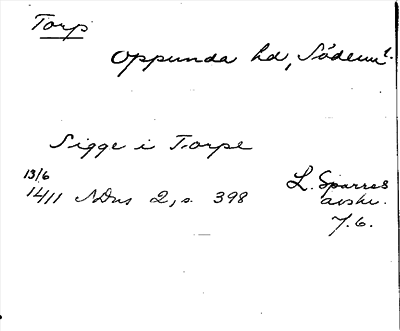 Torp
Oppunda hd, Söderml.
Sigge i Torpe
13/6
1411 SDns 2, s. 398
L. Sparres
avskr.
7.6.